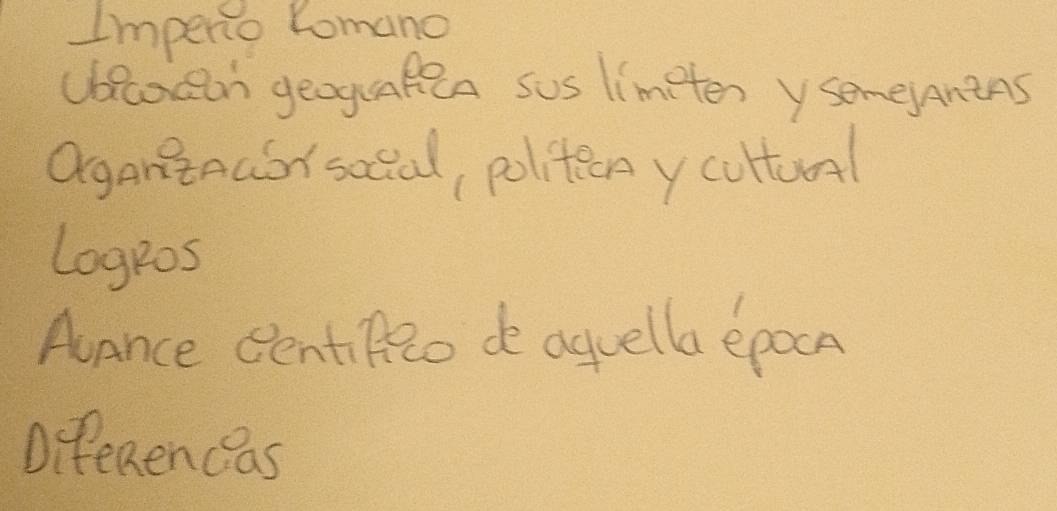 Imperio Romano
Ubicación geografica sus límites y semejanzas
Organización social, politica y cultural
Logros
Avance cientifico de aquella época
Diferencias